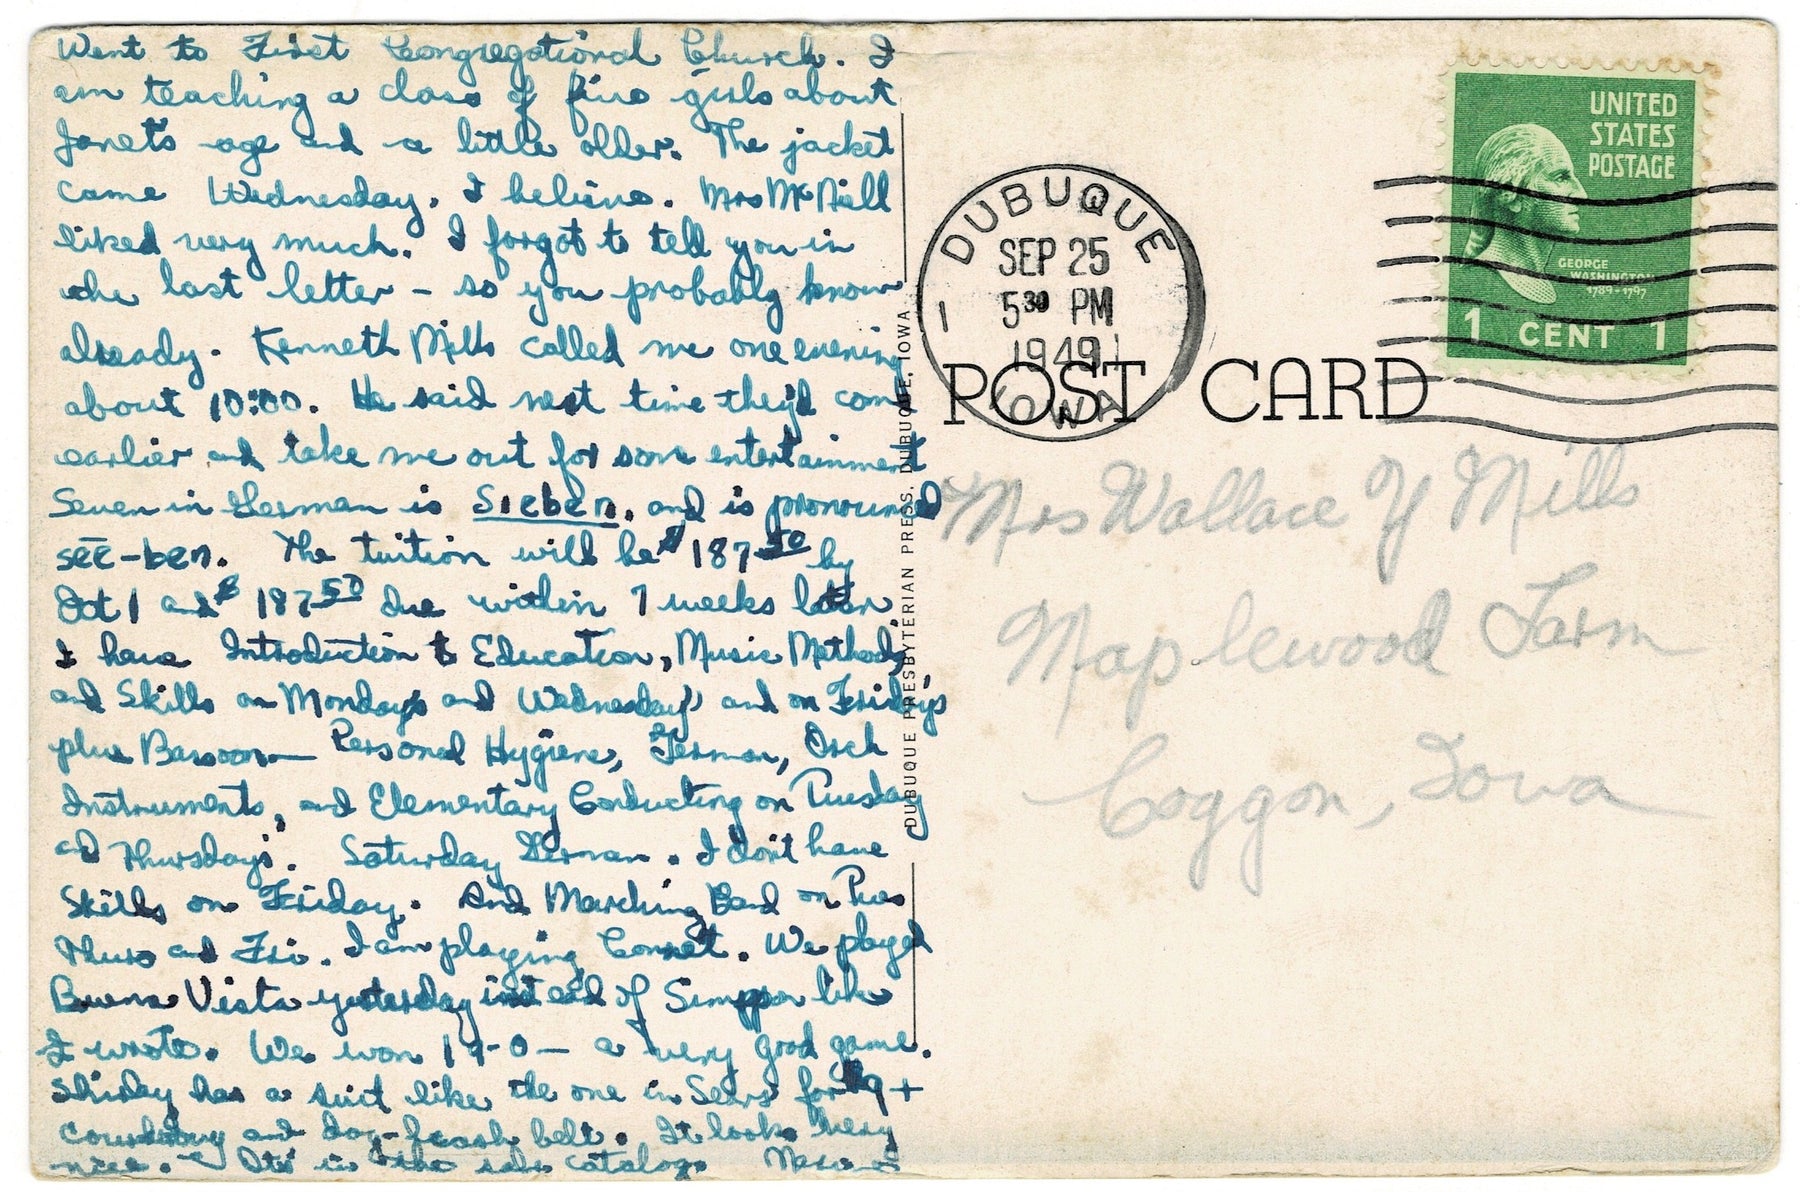 Went to First Congregational Church. I
am teaching a class of five girls about
Janet's age and a little older. The jacket
came Wednesday, I believe. Mrs McNeill
liked very much. I forgot to tell you in
the last letter – so you probably know
already. Kenneth Mills called me one evening
about 10:00. He said next time they'd come
earlier and take me out for some entertainment
Seven in German is Sieben, and is pronounced
sēē-ben. The tuition will be $187.50 by
Oct 1 and $187.50 due within 7 weeks later
I have Introduction to Education, Music Methods,
and Skills on Mondays and Wednesdays and on Friday's
plus Bassoon — Personal Hygiene, German, Orch
Instruments, and Elementary Conducting on Tuesday
and Thursdays'. Saturday German. I don't have
Skills on Friday. And Marching Band on Tues
Thurs and Fri. I am playing Cornet. We played
Buena Vista yesterday instead of Simpson like
I wrote. We won 19-0 — a very good game.
Shirley has a suit like the one in Sears for 19+
and dog-leash belt. It looks very
nice. in the sale catalog.
DUBUQUE PRESBYTERIAN PRESS, DUBUQUE, IOWA
DUBUQUE
SEP 25
5 30 PM
1949
IOWA
1
POST CARD
UNITED
STATES
POSTAGE
GEORGE
WASHINGTON
1789-1797
1 CENT 1
Mrs Wallace Y Mills
Maplewood Farm
Coggon, Iowa